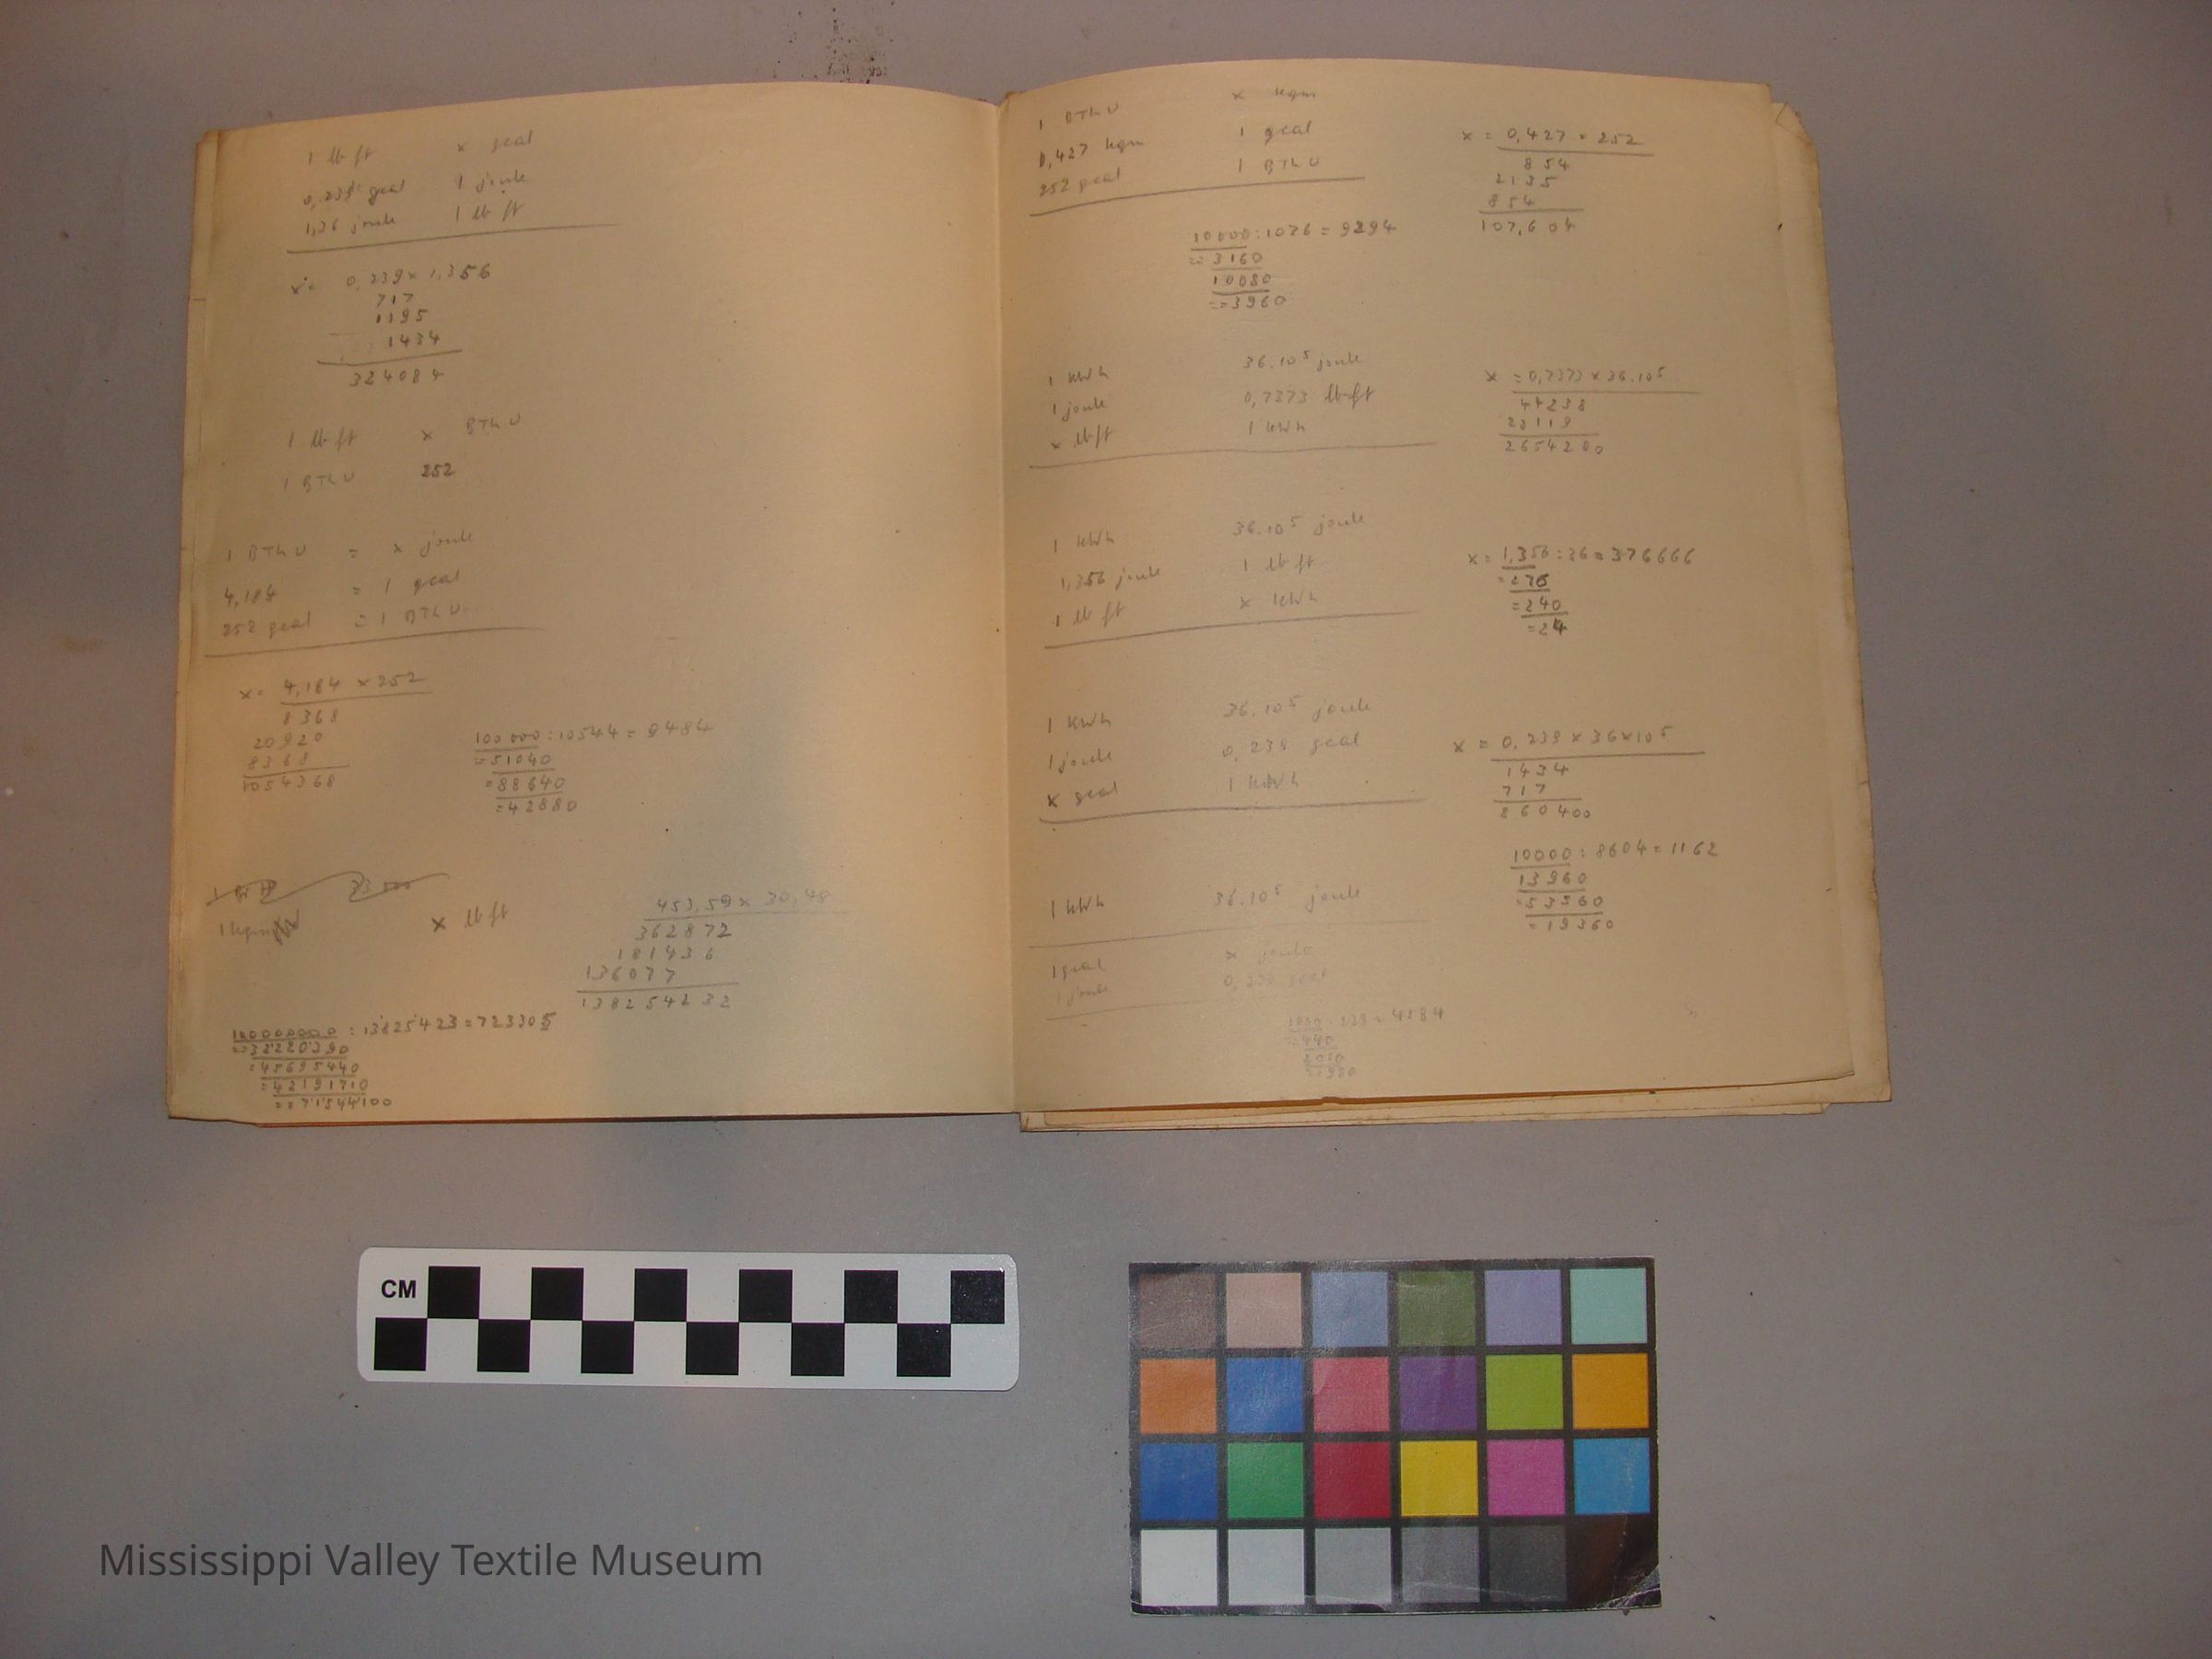 1 lb ft x gcal
0,239 gcal 1 joule
1,36 joule 1 lb ft
x = 0,239 x 1,356
717
1195
1434
324084
1 lb ft x BThU
1 BThU 252
1 BThU = x joule
4,184 = 1 gcal
252 gcal = 1 BThU
x = 4,184 x 252
8368
20920
8368
1054368
100000:10544 = 9484
=51040
=88640
=42880
1 kgm x lb ft
453,59 x 30,48
362872
181436
136077
138254232
1000000000:13825423=723305
==32220390
=45695440
=42191710
==71544100
1 BThU x kgm
0,427 kgm 1 gcal
252 gcal 1 BThU
x = 0,427 x 252
854
2135
854
107,604
10000:1076 = 9294
==3160
10080
==3960
1 kWh 36.10⁵ joule
1 joule 0,7373 lb ft
x lb ft 1 kWh
x = 0,7373 x 36.10⁵
44238
22119
2654280
1 kWh 36.10⁵ joule
1,356 joule 1 lb ft
1 lb ft x kWh
x = 1,356:36 = 376666
=276
=240
=24
1 kWh 36.10⁵ joule
1 joule 0,239 gcal
x gcal 1 kWh
x = 0,239 x 36x10⁵
1434
717
860400
10000:8604=1162
13960
=53560
=19360
1 kWh 36.10⁵ joule
1 gcal x joule
1 joule 0,239 gcal
1000:239=4184
=440
2010
==980
CM
Mississippi Valley Textile Museum